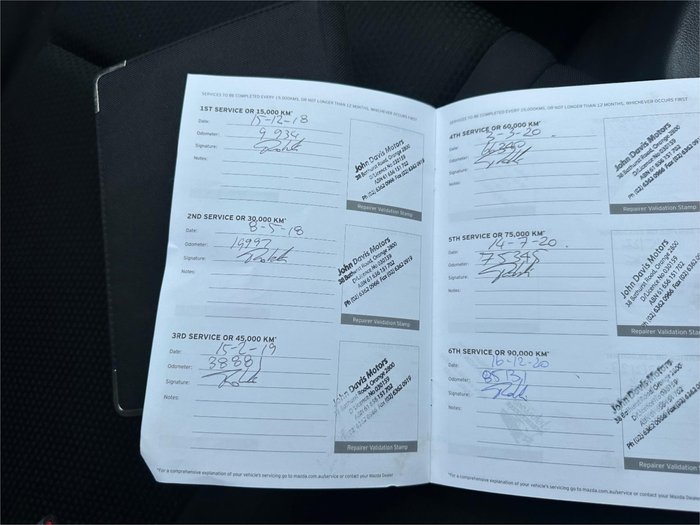 SERVICES TO BE COMPLETED EVERY 15,000KMS, OR NOT LONGER THAN 12 MONTHS, WHICHEVER OCCURS FIRST
1ST SERVICE OR 15,000 KM*
Date: 15-12-18
Odometer: 9 934
Signature:
Notes:
John Davis Motors
38 Bathurst Road, Orange 2800
D/Licence No 030159
ABN 61 656 151 702
Ph (02) 6362 0966 Fax (02) 6362 0919
Repairer Validation Stamp
2ND SERVICE OR 30,000 KM*
Date: 8-5-18
Odometer: 19997
Signature:
Notes:
John Davis Motors
38 Bathurst Road, Orange 2800
D/Licence No 030159
ABN 61 656 151 702
Ph (02) 6362 0966 Fax (02) 6362 0919
Repairer Validation Stamp
3RD SERVICE OR 45,000 KM*
Date: 15-2-19
Odometer: 3888
Signature:
Notes:
John Davis Motors
38 Bathurst Road, Orange 2800
D/Licence No 030159
ABN 61 656 151 702
Ph (02) 6362 0966 Fax (02) 6362 0919
Repairer Validation Stamp
*For a comprehensive explanation of your vehicle's servicing go to mazda.com.au/service or contact your Mazda Dealer
SERVICES TO BE COMPLETED EVERY 15,000KMS, OR NOT LONGER THAN 12 MONTHS, WHICHEVER OCCURS FIRST
4TH SERVICE OR 60,000 KM*
Date: 2-3-20
Odometer:
Signature:
Notes:
John Davis Motors
38 Bathurst Road, Orange 2800
D/Licence No 030159
ABN 61 656 151 702
Ph (02) 6362 0966 Fax (02) 6362 0919
Repairer Validation Stamp
5TH SERVICE OR 75,000 KM*
Date: 14-7-20
Odometer: 75345
Signature:
Notes:
John Davis Motors
38 Bathurst Road, Orange 2800
D/Licence No 030159
ABN 61 656 151 702
Ph (02) 6362 0966 Fax (02) 6362
Repairer Validation Stamp
6TH SERVICE OR 90,000 KM*
Date: 16-12-20
Odometer: 85131
Signature:
Notes:
John Davis Motors
38 Bathurst Road, Orange
D/Licence No 030159
ABN 61 656 151 702
Ph (02) 6362 0966 Fax (02)
Repairer Validation Stamp
*For a comprehensive explanation of your vehicle's servicing go to mazda.com.au/service or contact your Mazda Dealer